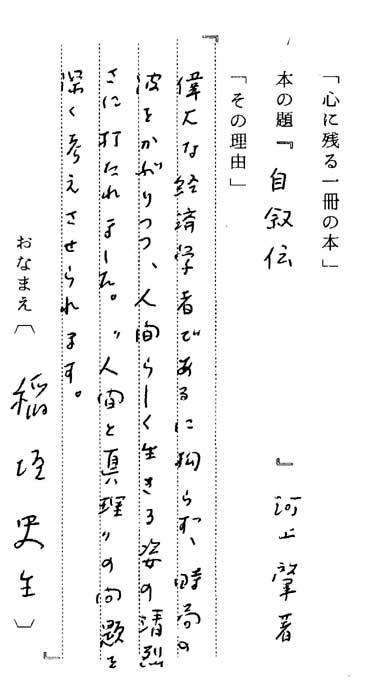 「心に残る一冊の本」
本の題『自叙伝』河上肇著
「その理由」
『偉大な経済学者であるに拘らず、時局の
波をかぶりつつ、人間らしく生きる姿の清烈
さに打たれました。〝人間と真理〟の問題を
深く考えさせられます。』
おなまえ〔稲垣史生〕